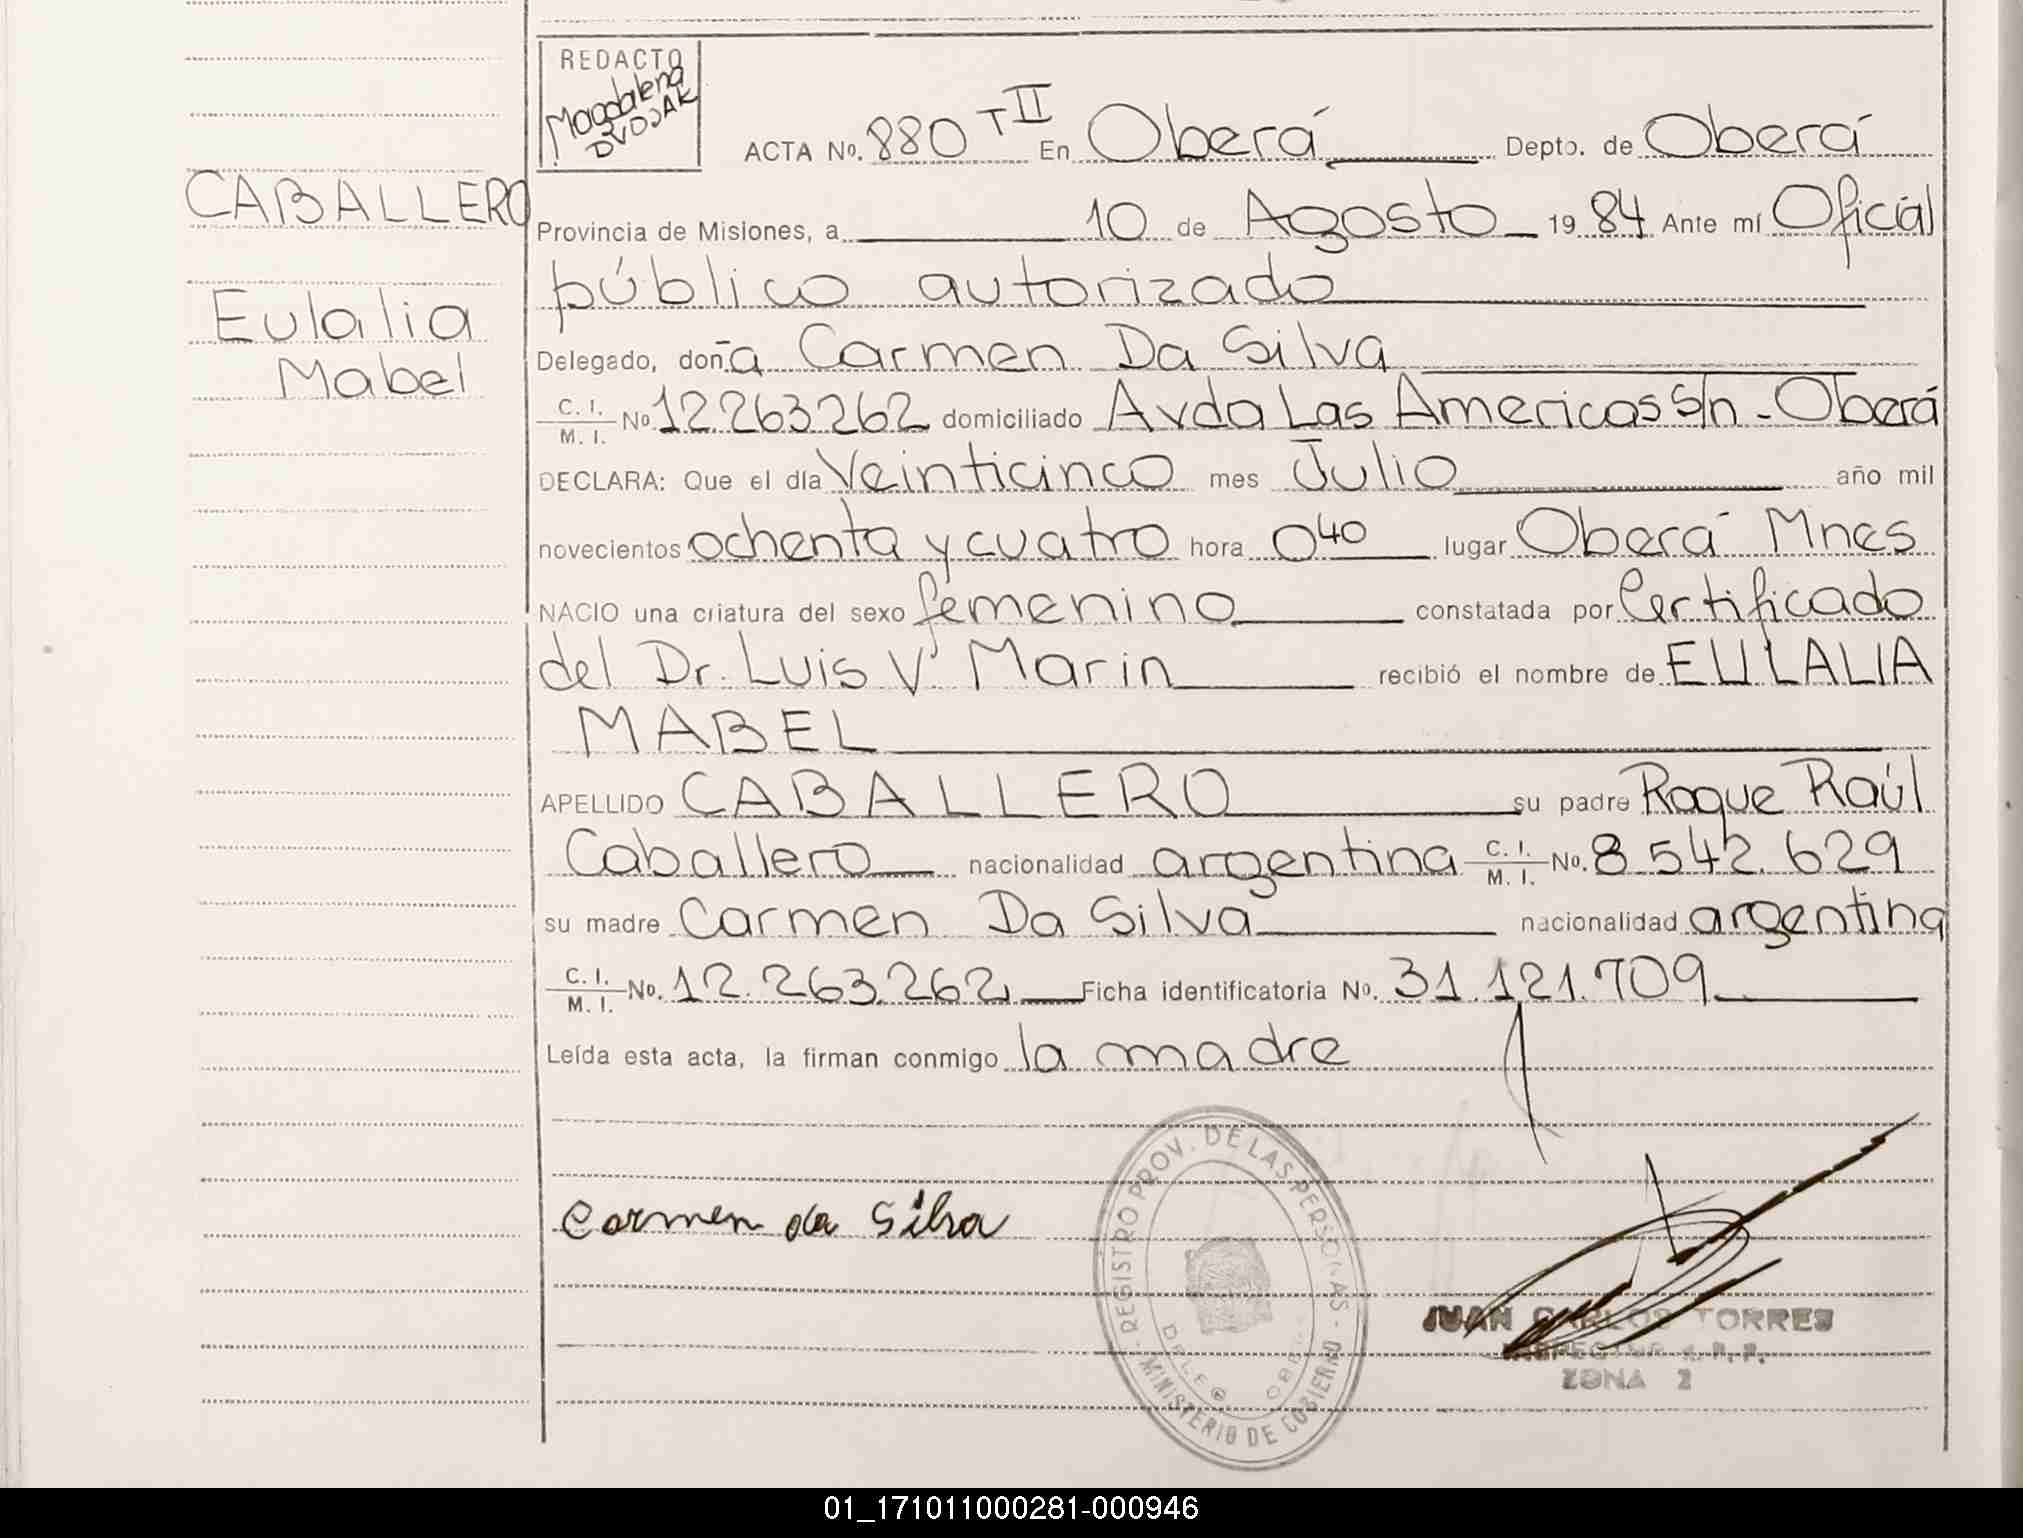 REDACTO
Magdalena
DVOJAK
ACTA No. 880 T II En Oberá Depto. de Oberá
CABALLERO
Provincia de Misiones, a 10 de Agosto 1984 Ante mí Oficial
público autorizado
Eulalia
Mabel
Delegado, doña Carmen Da Silva
C. I. / M. I. No. 12.263.262 domiciliado Avda Las Americas S/n - Oberá
DECLARA: Que el día Veinticinco mes Julio año mil
novecientos ochenta y cuatro hora 0 40 lugar Oberá Mnes
NACIO una criatura del sexo femenino constatada por Certificado
del Dr. Luis V. Marin recibió el nombre de EULALIA
MABEL
APELLIDO CABALLERO su padre Roque Raúl
Caballero nacionalidad argentina C. I. / M. I. No. 8.542.629
su madre Carmen Da Silva nacionalidad argentina
C. I. / M. I. No. 12.263.262 Ficha identificatoria No. 31.121.709
Leída esta acta, la firman conmigo la madre
Carmen da Silva
REGISTRO PROV. DE LAS PERSONAS - MINISTERIO DE GOBIERNO
JUAN CARLOS TORRES
INSPECTOR
ZONA 2
01_171011000281-000946